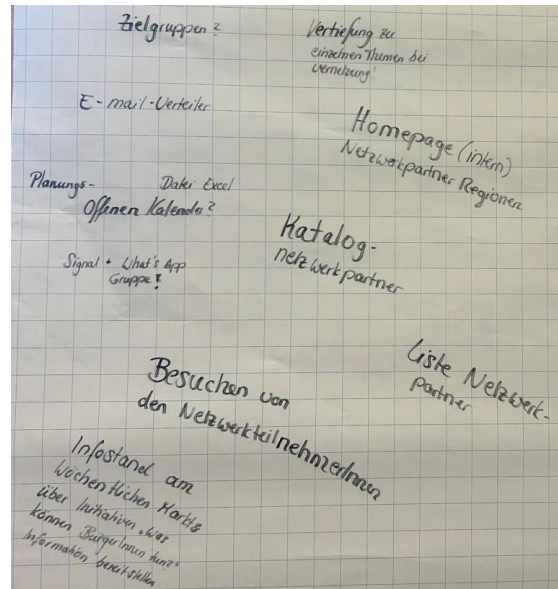 Zielgruppen?
Vertiefung zu
einzelnen Themen bei
Vernetzung!
E-mail-Verteiler
Homepage (intern)
Netzwerkpartner Regionen
Planungs- Datei Excel
Offenen Kalender?
Katalog-
netzwerkpartner
Signal + What's App
Gruppe?
Liste Netzwerk-
partner
Besuchen von
den NetzwerkteilnehmerInnen
Infostand am
wöchentlichen Markt
über Initiativen „was
können BürgerInnen tun?"
Information bereitstellen